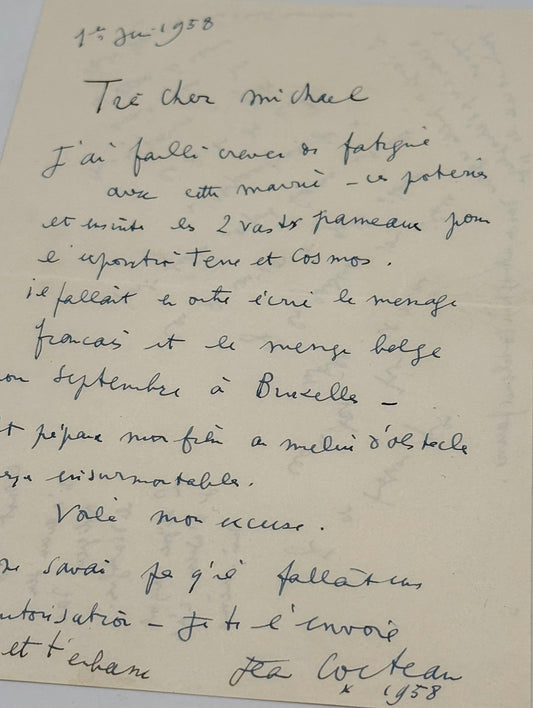 1er Juin 1958
Tré cher Michael
J'ai failli crever de fatigue
avec cette mairie - ces poteries
et ensuite les 2 vastes panneaux pour
l'exposition Terre et Cosmos.
il fallait en outre écrire le message
francais et le message belge
Septembre à Bruxelles -
préparer mon film au milieu d'obstacles
insurmontables.
Voilà mon excuse.
savais pas qu'il fallait une
autorisation - Je te l'envoie
et t'embrasse Jean Cocteau
* 1958